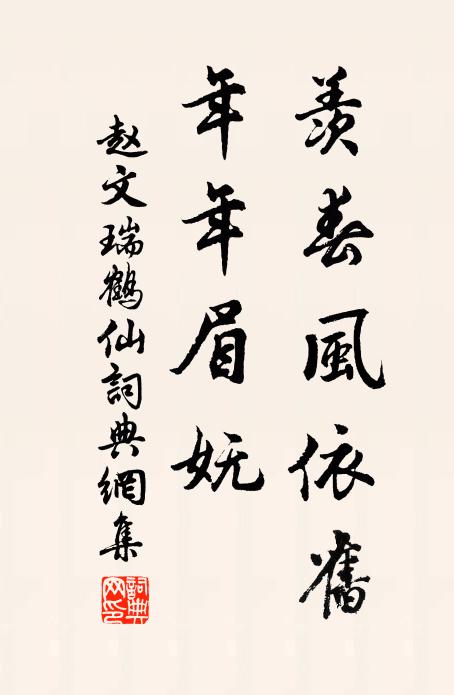 羨春風依舊
年年眉妩
赵文瑞鶴仙詞典網集
詞典网印